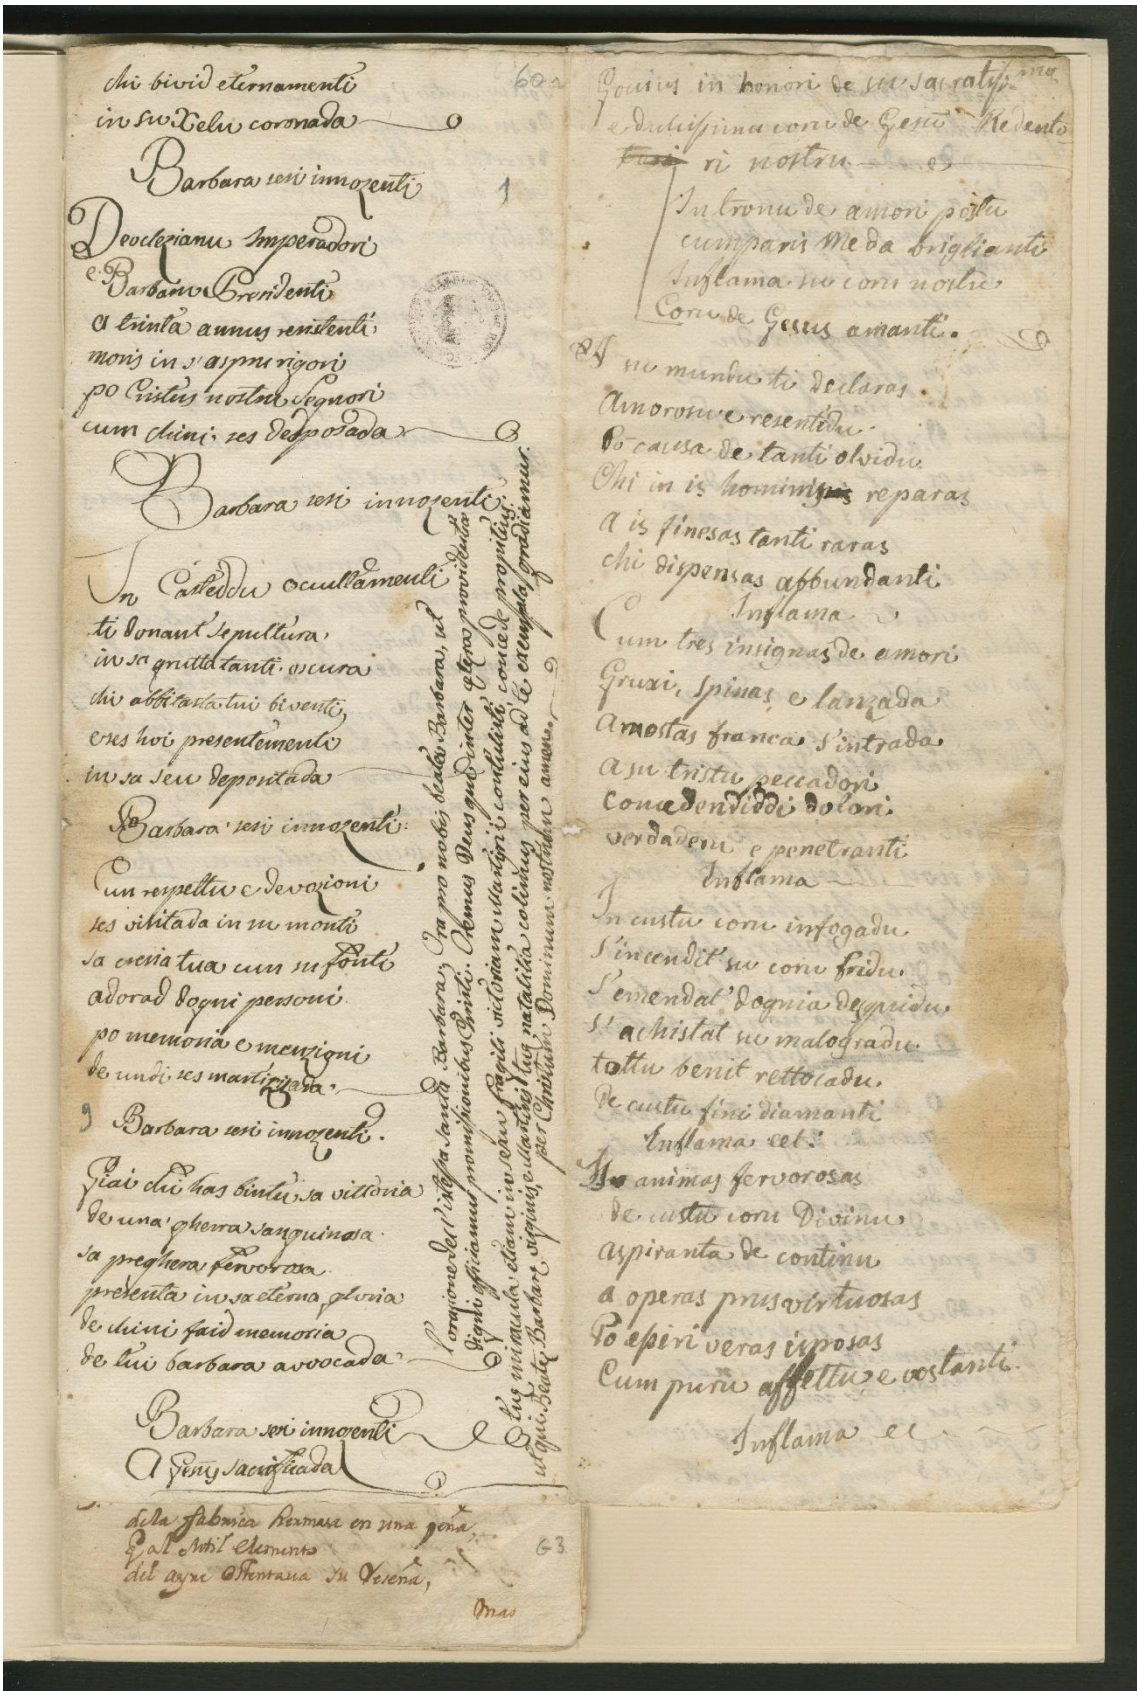 chi bivid eternamenti
in su Xelu coronada
Barbara sesi innozenti
Deoclezianu Imperadori
e Barbaru Presidenti
a trinta annus resistenti
moris in s'aspru rigori
po Cristus nostru Segnori
cum chini ses desposada
Barbara sesi innozenti
In Casteddu occultamenti
ti donant sepultura
in sa grutta tanti oscura
chi abbitasta tui biventi,
e ses hoi presentementi
in sa seu depositada
Barbara sesi innozenti
Cun respettu e devozioni
ses visitada in su monti
sa cresia tua cun su fonti
adorad dogni personi
po memoria e menzioni
de undi ses martirizada.
9
Barbara sesi innozenti.
Giai chi has bintu sa vittoria
de una gherra sanguinosa
sa preghera fervorosa
presenta in sa eterna gloria
de chini faid memoria
de tui barbara avvocada
Barbara sesi innozenti
A Gesus sacrificada
L'orazione dell'istessa santa Barbara, Ora pro nobis beata Barbara, ut
digni efficiamur promissionibus Christi. Oremus Deus qui inter cetera providentia
tuæ miracula etiam in sexu fragili victoriam Martirii contulisti, concede propitius,
ut qui Beatæ Barbaræ virginis, e Martiris tuæ natalitia colimus per eius ad te exempla gradiamur.
per Christum Dominum nostrum amen.
dela fabrica hermosa en una peña,
q al sutil elemento
del ayre ostentava su reseña,
Mas
63
60
1
Gouius in honori de su sacratissimo
e dulcissimu coru de Gesu Redento
ri nostru
In tronu de amori postu
cumparis meda briglianti
Inflama su coru nostru
Coru de Gesus amanti.
A su mundu ti declaras
Amorosu e resentidu
Po causa de tanti olvidu
Chi in is hominis reparas
A is finesas tanti raras
chi dispensas abbundanti
Inflama
Cum tres insignas de amori
Gruxi, spinas, e lanzada
Amostas franca s'intrada
A su tristu peccadori
Concedendiddi dolori
verdaderu e penetranti
Inflama
In custu coru infogadu
S'incendit su coru fridu
S'emendat dognia desquidu
S'achistat su malogradu
tottu benit rettocadu.
De custu fini diamanti
Inflama cet.
Is animas fervorosas
de custu coru Divinu
aspiranta de continu
a operas prus virtuosas
Po essiri veras isposas
Cum puru affettu e costanti.
Inflama ec